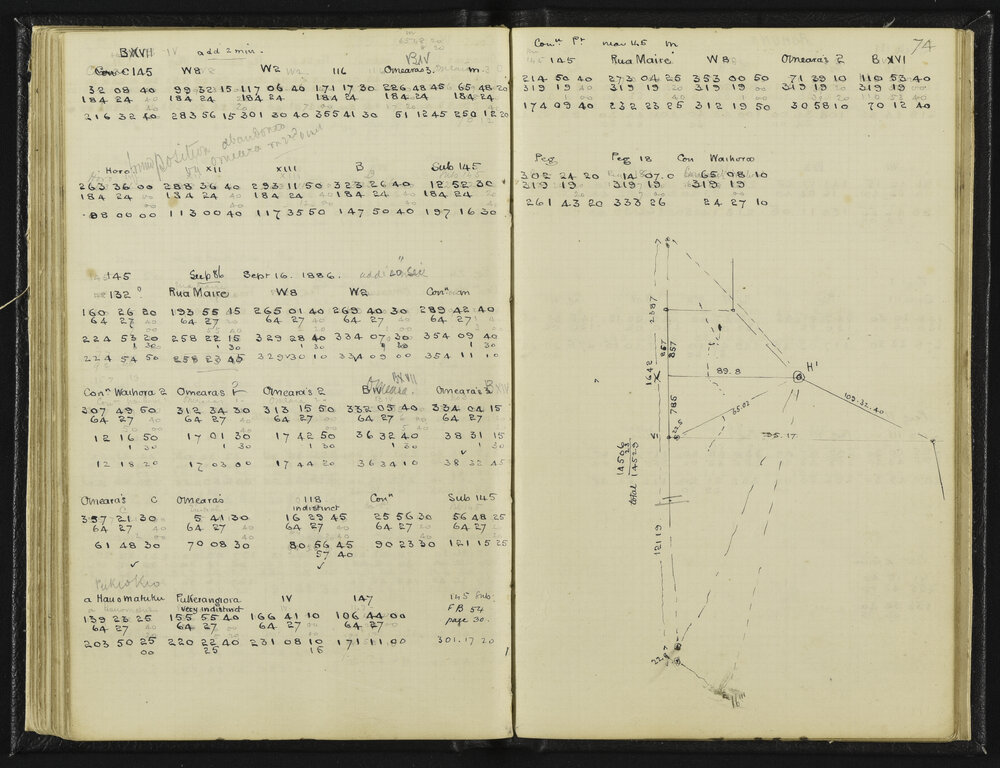 BXVII IV add 2 min.
BXIV
Con C145 W8 W2 116 Omearas 3. m
32 08 40 99 32 15 117 06 40 171 17 30 226 48 45 65 48 20
184 24 184 24 184 24 184 24 184 24 184 24
216 32 40 283 56 15 301 30 40 355 41 30 51 12 45 250 12 20
position abandoned
Horo XII XIII B Sub 145
263 36 00 288 36 40 293 11 50 323 26 40 12 52 30
184 24 184 24 184 24 184 24 184 24
88 00 00 113 00 40 117 35 50 147 50 40 197 16 30
145 Sub 86 Sept 16. 1886. add 20" Sec
132 Rua Maire W8 W2 Con m
160 26 20 193 55 15 265 01 40 269 40 30 289 42 40
64 27 64 27 64 27 64 27 64 27
224 53 20 258 22 15 329 28 40 334 07 30 354 09 40
1 30 1 30 1 30 1 30 1 30
224 54 50 258 23 45 329 30 10 334 09 00 354 11 10
BXVII
Con Waihora 2 Omearas 1 Omeara's 2 B Omaras 3 BXIV
307 49 50 312 34 30 313 15 50 332 05 40 334 04 15
64 27 64 27 64 27 64 27 64 27
12 16 50 17 01 30 17 42 50 36 32 40 38 31 15
1 30 1 30 1 30 1 30 1 30
12 18 20 17 03 00 17 44 20 36 34 10 38 32 45
Omearas C Omearas 118 Con Sub 145
indistinct
357 21 30 5 41 30 16 29 45 25 56 30 56 48 25
64 27 64 27 64 27 64 27 64 27
61 48 30 70 08 30 80 56 45 90 23 30 121 15 25
57 40
Pukiokio
a Hauomatuku Pukerangiora IV 147 145 Sub
very indistinct FB 54
139 23 25 155 55 40 166 41 10 106 44 00 page 30.
64 27 64 27 64 27 64 27
203 50 25 220 22 40 231 08 10 171 11 00 301.17 20
00 25 15
74
Con Pt near 145 m
145 Rua Maire W8 Omearas 2 B XVI
214 50 40 273 04 25 353 00 50 71 29 10 110 53 40
319 19 319 19 319 19 319 19 319 19
174 09 40 232 23 25 312 19 50 30 58 10 70 12 40
Peg Peg 18 Con Waihora
302 24 20 14 07.0 65 08 10
319 19 319 19 319 19
261 43 20 333 26 24 27 10
2387
857
857
1642
89.8
H'
109.32.40
785
65.02
VI
22.5
735.17
14506
23
total 14529
12119
22.7
16"